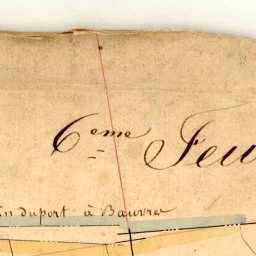 6eme Feu
in duport à Bauvre